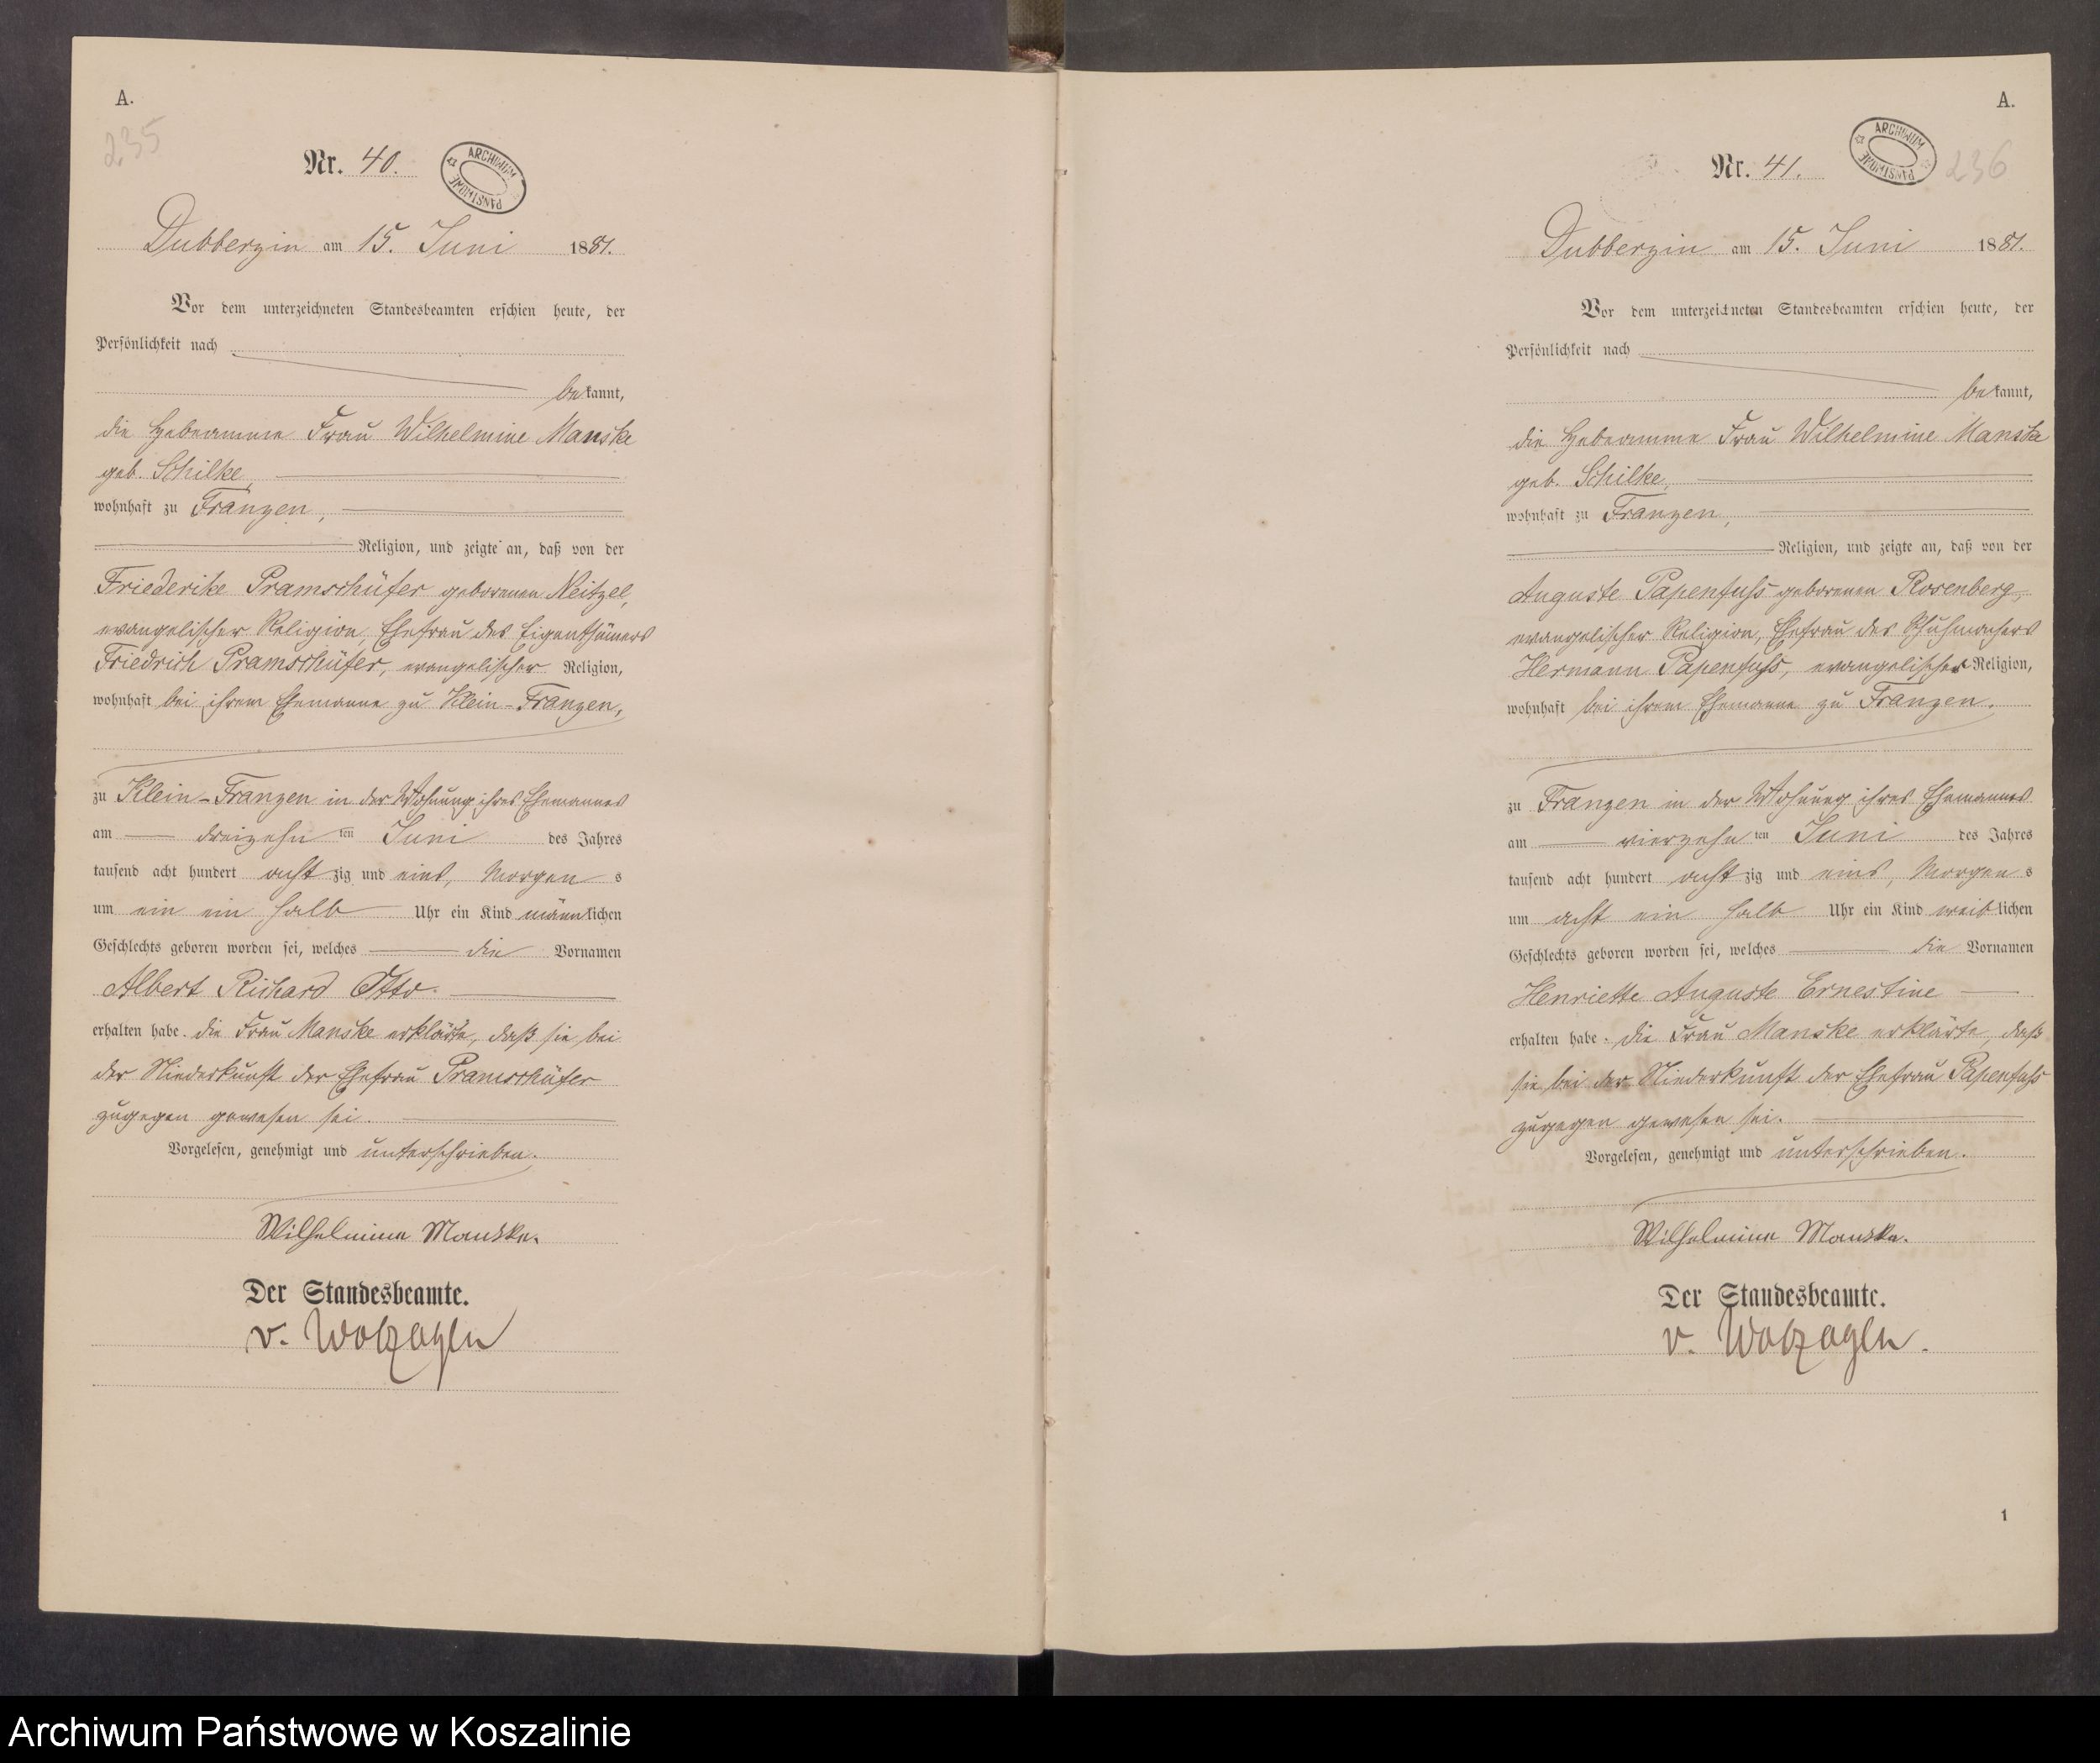 A.
235
Nr. 40.
ARCHIWUM PAŃSTWOWE
Dubberzin am 15. Juni 1881.
Vor dem unterzeichneten Standesbeamten erschien heute, der
Persönlichkeit nach
bekannt,
die Hebeamme Frau Wilhelmine Manske
geb. Schilke,
wohnhaft zu Franzen,
Religion, und zeigte an, daß von der
Friederike Pramschüfer geborenen Neitzel,
evangelischer Religion, Ehefrau des Eigenthümers
Friedrich Pramschüfer, evangelischer Religion,
wohnhaft bei ihrem Ehemanne zu Klein-Franzen,
zu Klein-Franzen in der Wohnung ihres Ehemannes
am dreizehnten Juni des Jahres
tausend acht hundert achtzig und eins, Morgens
um ein ein halb Uhr ein Kind männlichen
Geschlechts geboren worden sei, welches die Vornamen
Albert Richard Otto.
erhalten habe. die Frau Manske erklärte, daß sie bei
der Niederkunft der Ehefrau Pramschüfer
zugegen gewesen sei.
Vorgelesen, genehmigt und unterschrieben.
Wilhelmine Manske.
Der Standesbeamte.
v. Wolzogen
A.
236
Nr. 41.
ARCHIWUM PAŃSTWOWE
Dubberzin am 15. Juni 1881.
Vor dem unterzeichneten Standesbeamten erschien heute, der
Persönlichkeit nach
bekannt,
die Hebeamme Frau Wilhelmine Manske
geb. Schilke,
wohnhaft zu Franzen,
Religion, und zeigte an, daß von der
Auguste Papenfuss geborenen Rosenberg,
evangelischer Religion, Ehefrau des Schuhmachers
Hermann Papenfuss, evangelischer Religion,
wohnhaft bei ihrem Ehemanne zu Franzen.
zu Franzen in der Wohnung ihres Ehemannes
am vierzehnten Juni des Jahres
tausend acht hundert achtzig und eins, Morgens
um acht ein halb Uhr ein Kind weiblichen
Geschlechts geboren worden sei, welches die Vornamen
Henriette Auguste Ernestine
erhalten habe. die Frau Manske erklärte, daß
sie bei der Niederkunft der Ehefrau Papenfuss
zugegen gewesen sei.
Vorgelesen, genehmigt und unterschrieben.
Wilhelmine Manske.
Der Standesbeamte.
v. Wolzogen.
1
Archiwum Państwowe w Koszalinie